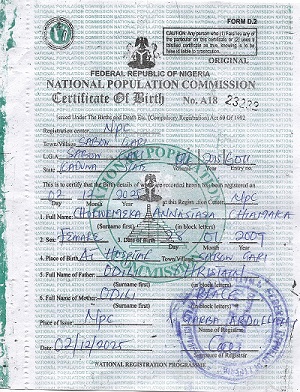 FORM D.2
CAUTION: Any person who (1) falsifies any of the particulars on this certificate or (2) uses a falsified certificate as true, knowing it to be false is liable to prosecution.
ORIGINAL
FEDERAL REPUBLIC OF NIGERIA
NATIONAL POPULATION COMMISSION
Certificate Of Birth No. A18 23223
Issued Under The Births and Death Etc. (Compulsory Registration) Act 69 Of 1992
Registration center NPC
Town/Village SABON GARI
L.G.A SABON GARI
State KADUNA Volume Year Entry no.
This is to certify that the Birth details of which are recorded herein, has been registered on
02 12 2025 NPC
Day Month Year at this Registration Center
1. Full Name ANNASTASIA CHIAMAKA
(Surname first) (in block letters)
2. Sex: Female 3. Date of Birth 2009
Day Month Year
4. Place of Birth At Hospital Town/Village SABON GARI
5. Full Name of Father ODILI
(Surname first) (in block letters)
6. Full Name of Mother ODILI
(Surname first) (in block letters)
Place of Issue NPC GARBA ABDULLAHI
Name of Registrar
02/12/2025
Date Signature of Registrar
NATIONAL REGISTRATION PROGRAMME